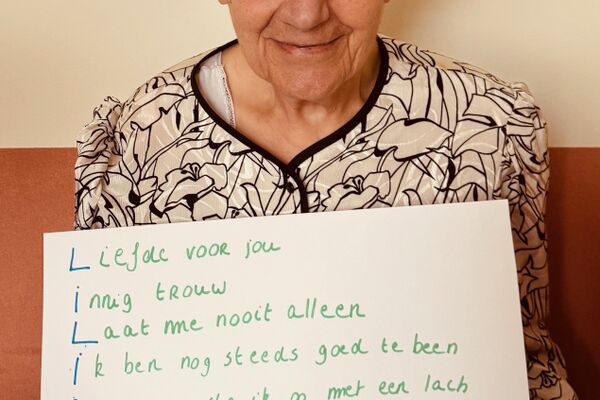 Liefde voor jou
innig trouw
Laat me nooit alleen
ik ben nog steeds goed te been
ik met een lach